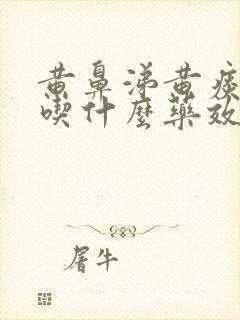 黄鼻涕黄痰
喫什麼藥效
屠牛